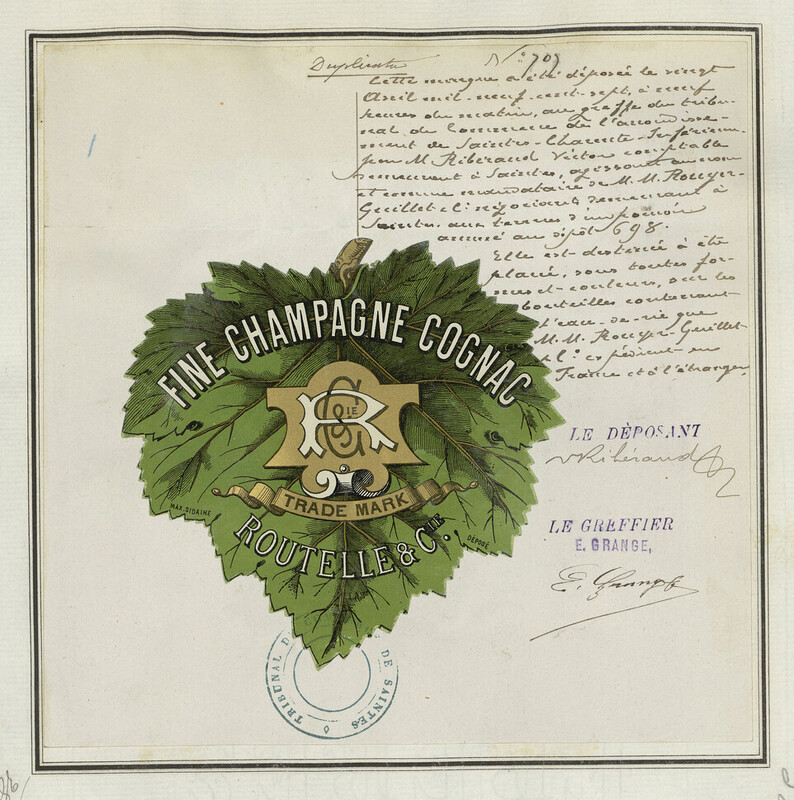 Duplicata
N° 707
Cette marque a été déposée le vingt
Avril mil-neuf-cent-sept, à neuf
heures du matin, au greffe du tribu-
nal de Commerce de l'arrondisse-
ment de Saintes-Charente-Inférieure
par M. Ribéraud Victor comptable
demeurant à Saintes, agissant au nom
et comme mandataire de M. M. Rouyer-
Guillet et Cie négociants demeurant à
Saintes, aux termes d'un pouvoir
annexé au dépôt 698.
Elle est destinée à être
placée, sous toutes for-
mes et couleurs, sur les
bouteilles contenant
l'eau-de-vie que
M. M. Rouyer-Guillet
& Cie expédient en
France et à l'étranger.
FINE CHAMPAGNE COGNAC
R & CIE
TRADE MARK
MAX. SIDAINE
ROUTELLE & CIE.
DÉPOSÉ
LE DÈPOSANT
V Ribéraud
LE GREFFIER
E. GRANGE,
E. Grange
TRIBUNAL D DE SAINTES